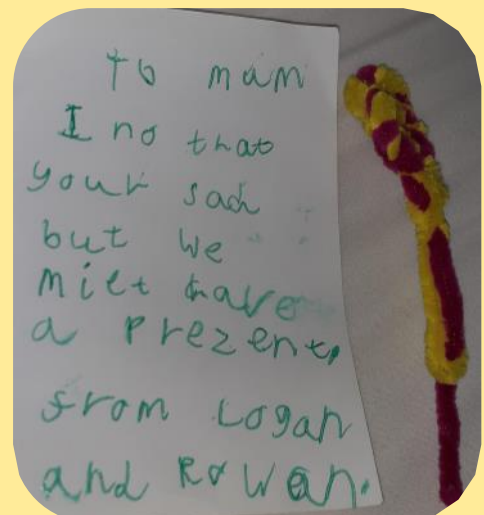 to mam
I no that
your sad
but we
miet have
a prezent.
from Logan
and Rowan.